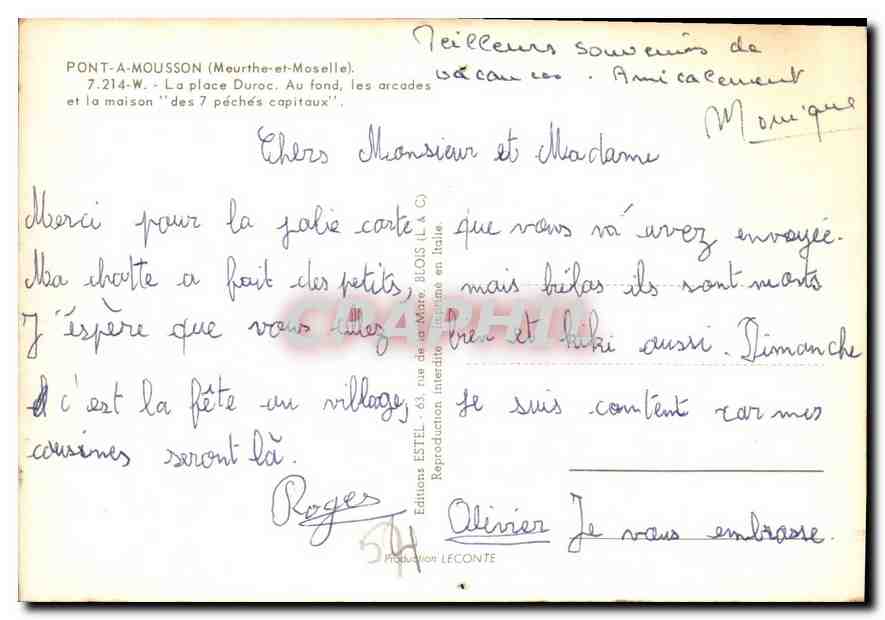 Meilleurs souvenirs de
vacances. Amicalement
Monique
PONT-A-MOUSSON (Meurthe-et-Moselle).
7.214-W. - La place Duroc. Au fond, les arcades
et la maison "des 7 péchés capitaux".
Chers Monsieur et Madame
Merci pour la jolie carte que vous m'avez envoyée.
Ma chatte a fait des petits, mais hélas ils sont morts
J'éspère que vous allez bien et kiki aussi. Dimanche
c'est la fête au village, Je suis content car mes
cousines seront là.
Roger
Olivier Je vous embrasse.
Editions ESTEL - 63, rue de la Mare, BLOIS (L & C)
Reproduction interdite - imprimé en Italie.
CPAPHIL
54
Production LECONTE